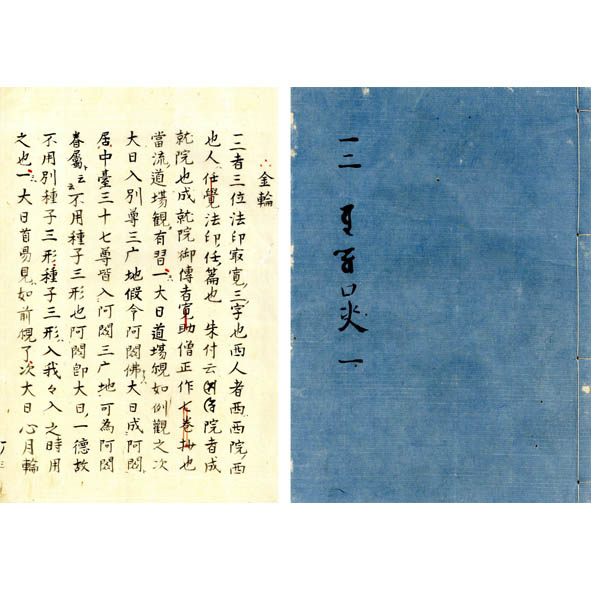 口决 一
金輪
三者三位法印㝡寛三字也西人者西西院西
也人任覺法印任篇也 朱付云院者成
就院也成就院御傳者寛助僧正作七卷抄也
當流道場觀有習一大日道場覌如例觀之次
大日入別尊三广地假令阿閦佛大日成阿閦
居中臺三十七尊皆入阿閦三广地可為阿閦
眷屬云云不用種子三形也阿閦即大日一德故
不用別種子三形種子三形入我々入之時用
之也一大日首易見如前覌了次大日心月輪